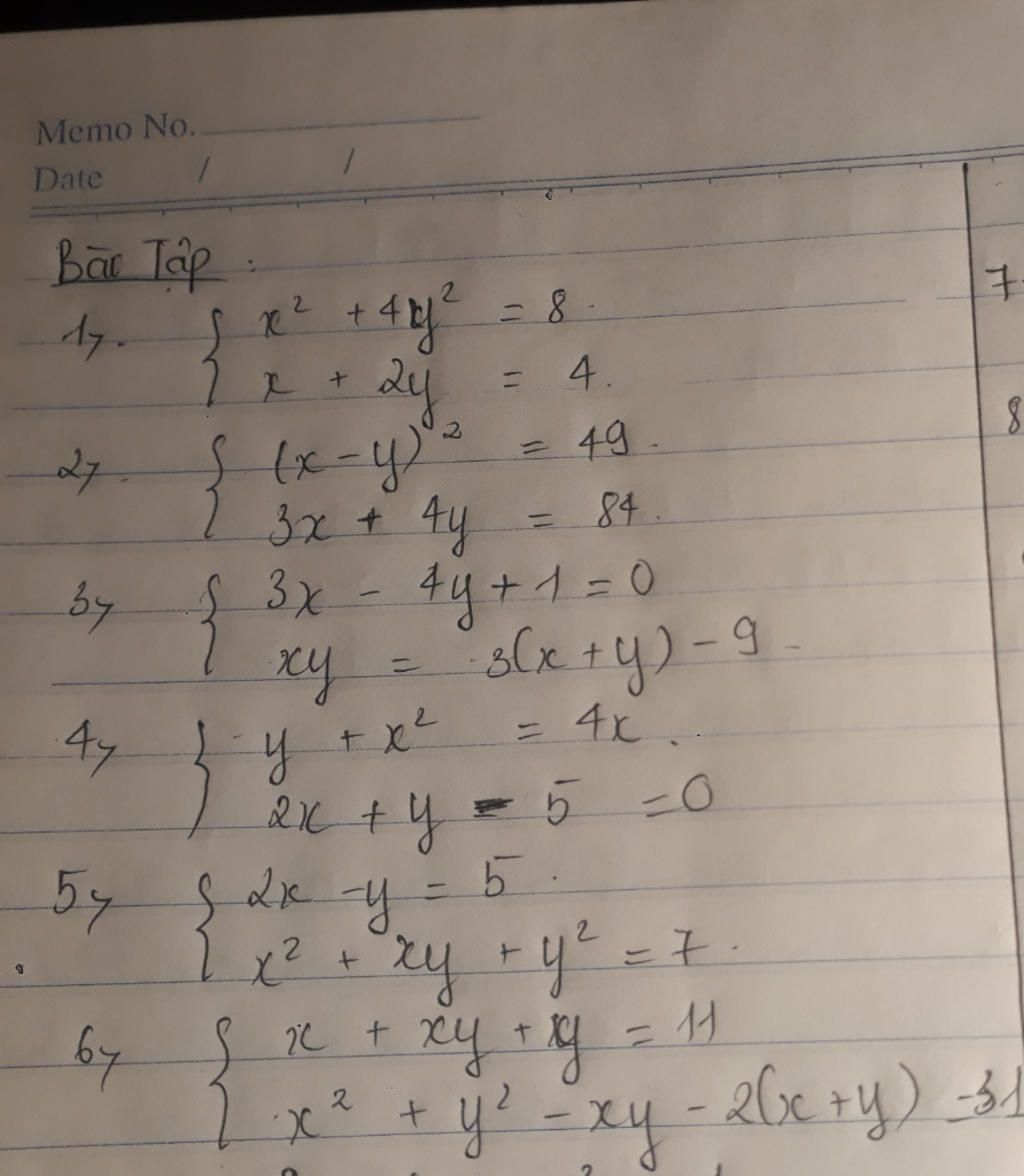 Memo No.
Date / /
Bài Tập :
1, { x² + 4y² = 8
x + 2y = 4.
2, { (x - y)² = 49
3x + 4y = 84.
3, { 3x - 4y + 1 = 0
xy = 3(x + y) - 9
4, { y + x² = 4x.
2x + y - 5 = 0
5, { 2x - y = 5
x² + xy + y² = 7
6, { x + xy + y = 11
x² + y² - xy - 2(x + y) -31
7.
8